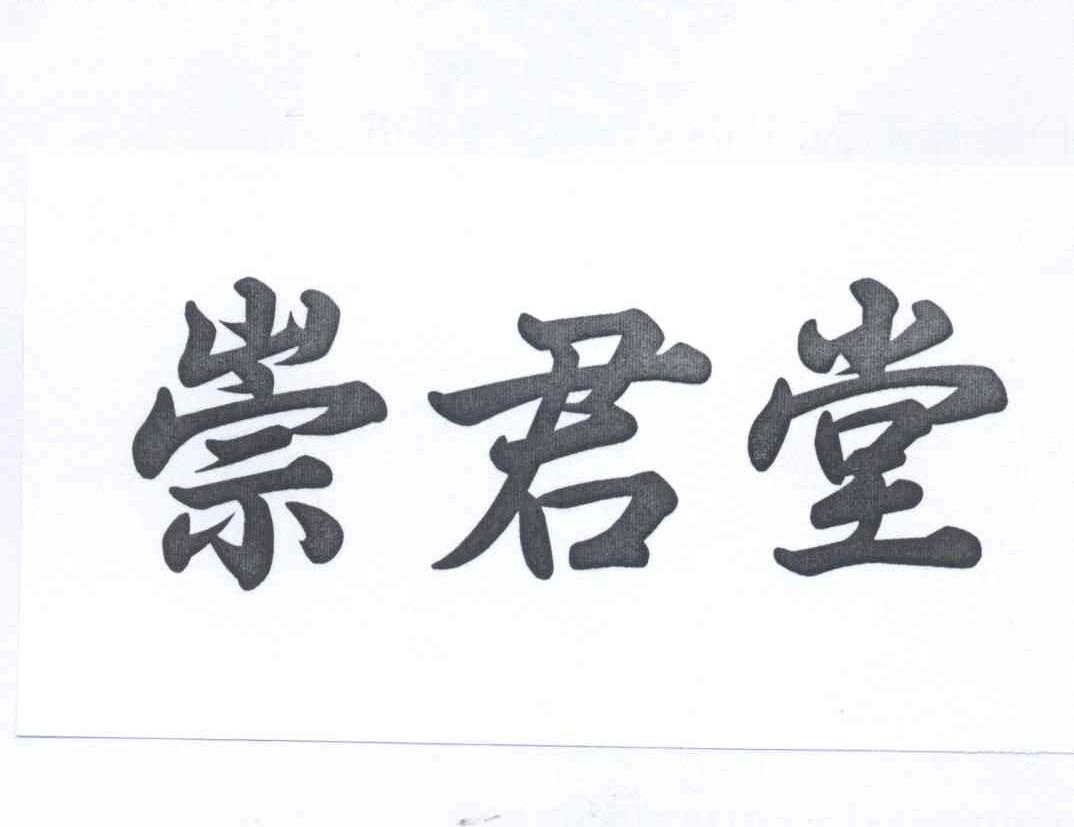 崇君堂